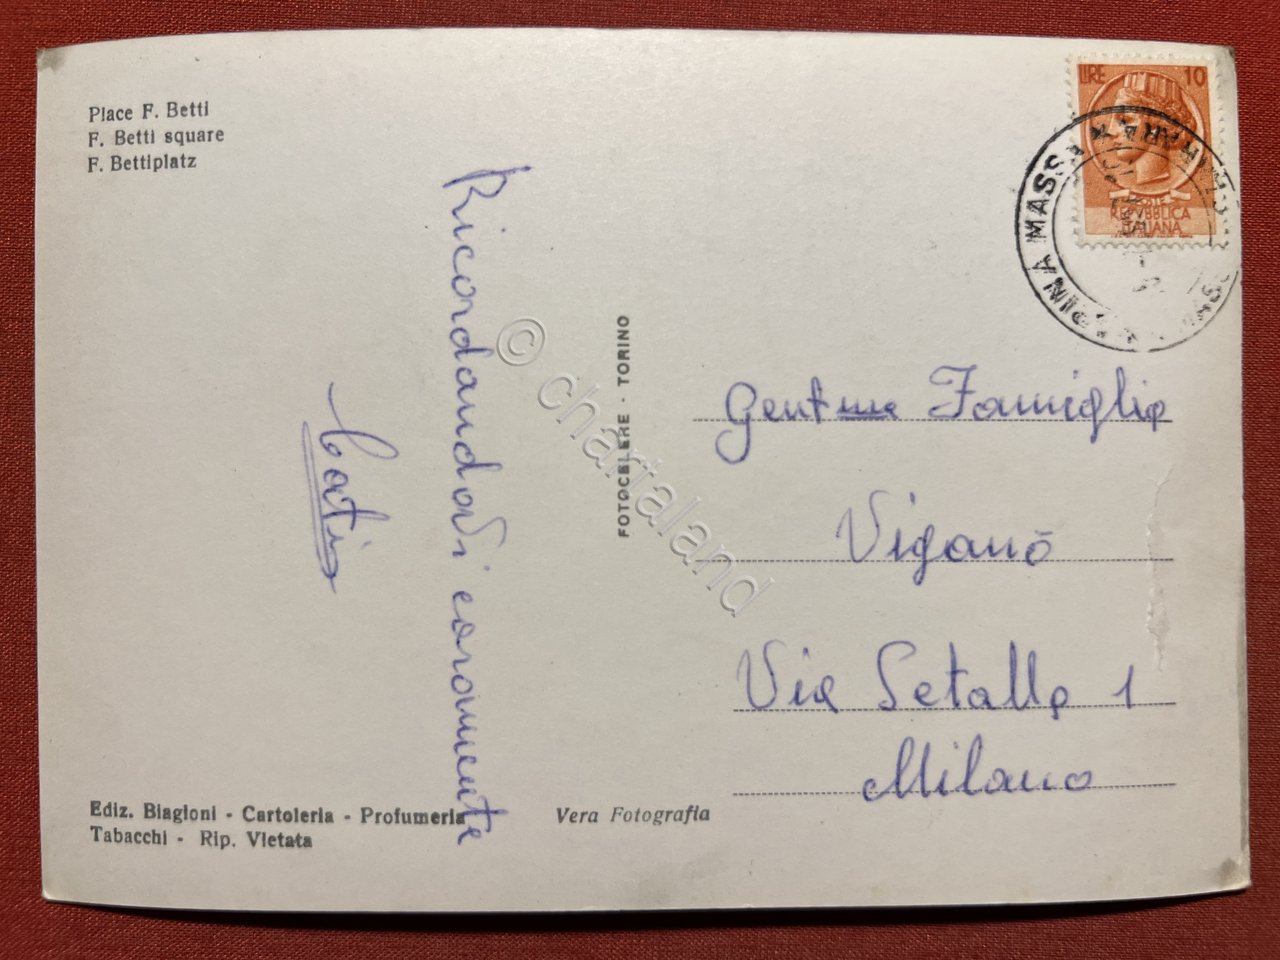 Place F. Betti
F. Betti square
F. Bettiplatz
LIRE 10
POSTE
REPVBBLICA
ITALIANA
MARINA MASSA
Ricordandovi caramente
Cati
FOTOCELERE - TORINO
Gent.me Famiglia
Viganò
Via Setalla 1
Milano
Ediz. Biagioni - Cartoleria - Profumeria
Tabacchi - Rip. Vietata
Vera Fotografia
© chartaland